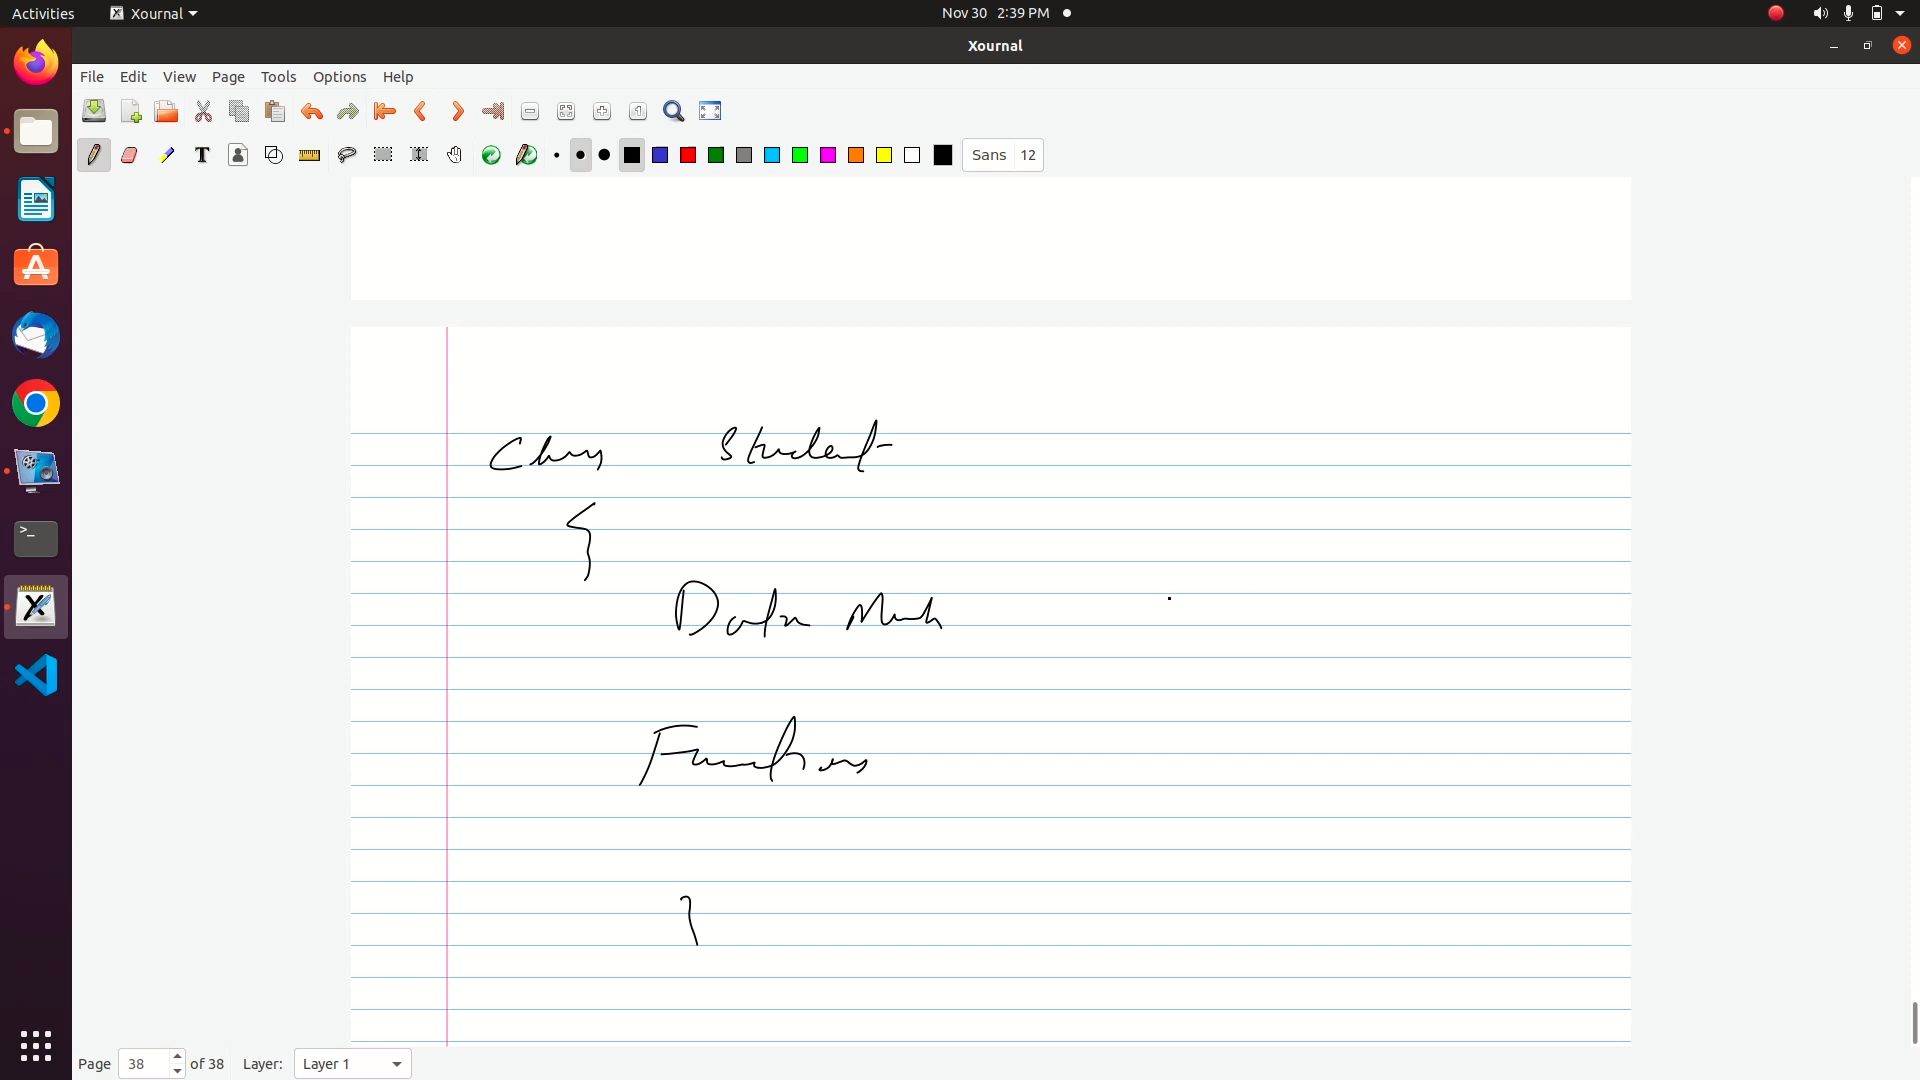 Activities Xournal Nov 30 2:39 PM
Xournal
File Edit View Page Tools Options Help
T Sans 12
Class Student
{
Data Memb
Functions
}
Page 38 of 38 Layer: Layer 1